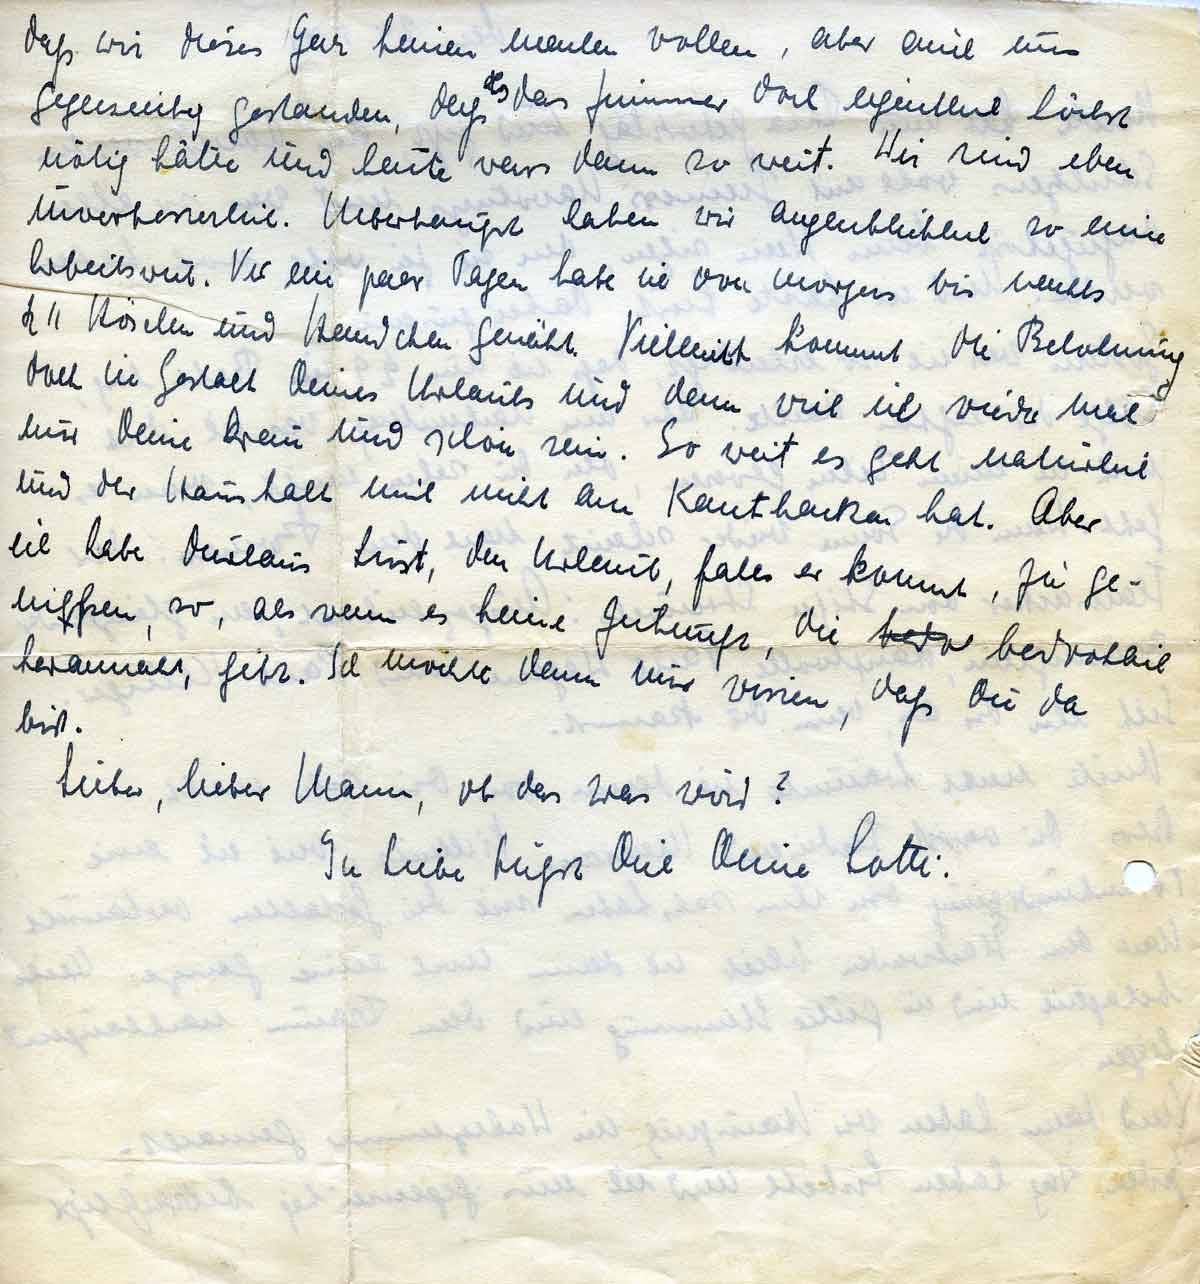 daß wir dieses Jahr keinen malen wollen, aber auch uns
gegenseitig gestanden, daß es das Zimmer doch eigentlich höchst
nötig hätte und heute wars dann so weit. Wir sind eben
unverbesserlich. Ueberhaupt haben wir augenblicklich so eine
Arbeitswut. Vor ein paar Tagen habe ich von morgens bis nachts
½ 11 Höschen und Hemdchen genäht. Vielleicht kommt die Belohnung
doch in Gestalt Deines Urlaubs und dann will ich wieder mal
nur Deine Frau und schön sein. So weit es geht natürlich
und der Haushalt mich nicht am Kanthacken hat. Aber
ich habe durchaus Lust, den Urlaub, falls er kommt, zu ge-
nießen, so, als wenn es keine Zukunft, die bedrohlich
herannaht, gibt. Ich möchte dann nur wissen, daß Du da
bist.
Lieber, lieber Mann, ob das was wird?
In Liebe küßt Dich Deine Lotti.